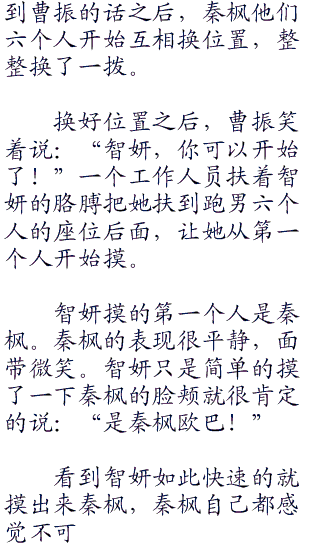 到曹振的话之后，秦枫他们
六个人开始互相换位置，整
整换了一拨。
换好位置之后，曹振笑
着说：“智妍，你可以开始
了！”一个工作人员扶着智
妍的胳膊把她扶到跑男六个
人的座位后面，让她从第一
个人开始摸。
智妍摸的第一个人是秦
枫。秦枫的表现很平静，面
带微笑。智妍只是简单的摸
了一下秦枫的脸颊就很肯定
的说：“是秦枫欧巴！”
看到智妍如此快速的就
摸出来秦枫，秦枫自己都感
觉不可